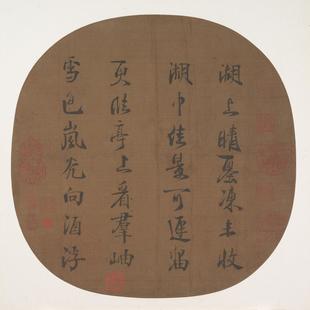 湖上晴凍未收
湖中佳景可留
亭上看羣岫
雪色嵐光向酒浮